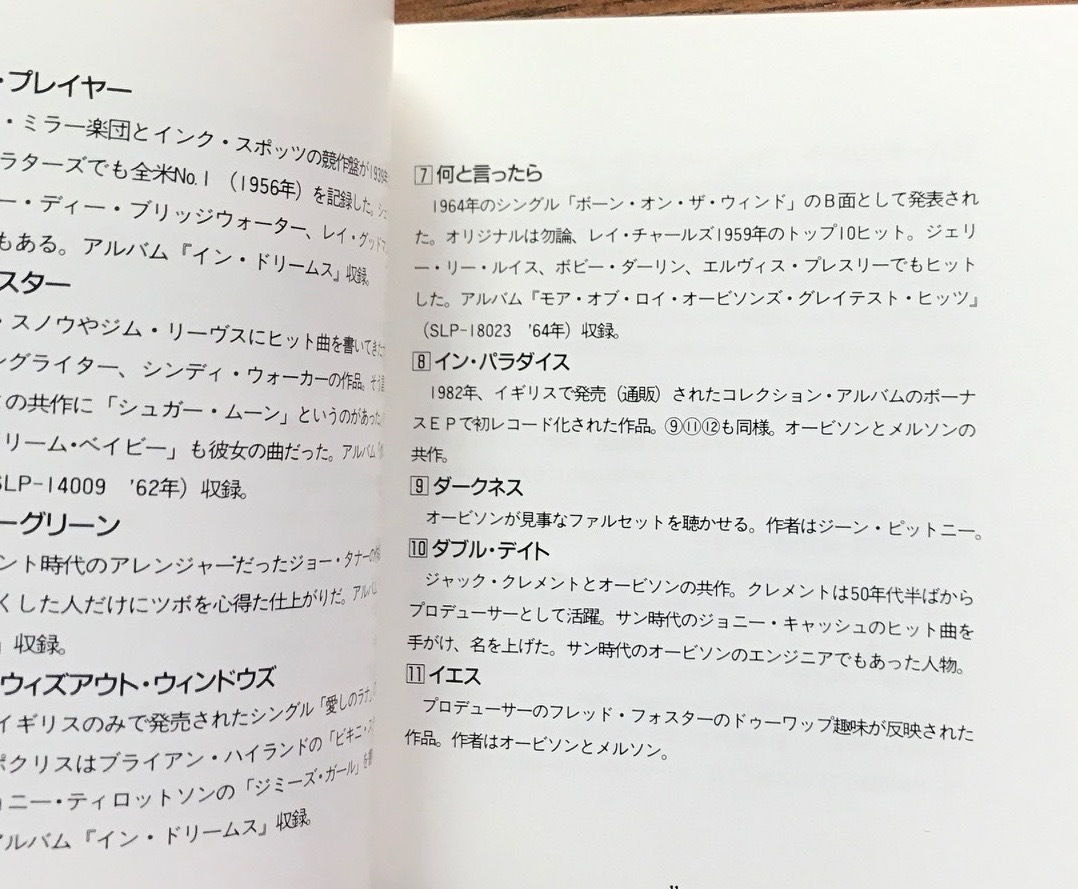 ・プレイヤー
・ミラー楽団とインク・スポッツの競作盤が1939年
ラターズでも全米No.1（1956年）を記録した。
ー・ディー・ブリッジウォーター、レイ・グッドマ
もある。アルバム『イン・ドリームス』収録。
スター
・スノウやジム・リーヴスにヒット曲を書いてきた
ングライター、シンディ・ウォーカーの作品。
の共作に「シュガー・ムーン」というのがあった
リーム・ベイビー」も彼女の曲だった。アルバム
SLP-14009 '62年）収録。
ーグリーン
ント時代のアレンジャーだったジョー・タナーの
くした人だけにツボを心得た仕上がりだ。アルバム
』収録。
ウィズアウト・ウィンドウズ
イギリスのみで発売されたシングル「愛しのラナ」
ポクリスはブライアン・ハイランドの「ビキニ・ス
ョニー・ティロットソンの「ジミーズ・ガール」を
アルバム『イン・ドリームス』収録。
7 何と言ったら
1964年のシングル「ボーン・オン・ザ・ウィンド」のＢ面として発表され
た。オリジナルは勿論、レイ・チャールズ1959年のトップ10ヒット。ジェリ
ー・リー・ルイス、ボビー・ダーリン、エルヴィス・プレスリーでもヒット
した。アルバム『モア・オブ・ロイ・オービソンズ・グレイテスト・ヒッツ』
（SLP-18023 '64年）収録。
8 イン・パラダイス
1982年、イギリスで発売（通販）されたコレクション・アルバムのボーナ
スＥＰで初レコード化された作品。⑨⑪⑫も同様。オービソンとメルソンの
共作。
9 ダークネス
オービソンが見事なファルセットを聴かせる。作者はジーン・ピットニー。
10 ダブル・デイト
ジャック・クレメントとオービソンの共作。クレメントは50年代半ばから
プロデューサーとして活躍。サン時代のジョニー・キャッシュのヒット曲を
手がけ、名を上げた。サン時代のオービソンのエンジニアでもあった人物。
11 イエス
プロデューサーのフレッド・フォスターのドゥーワップ趣味が反映された
作品。作者はオービソンとメルソン。